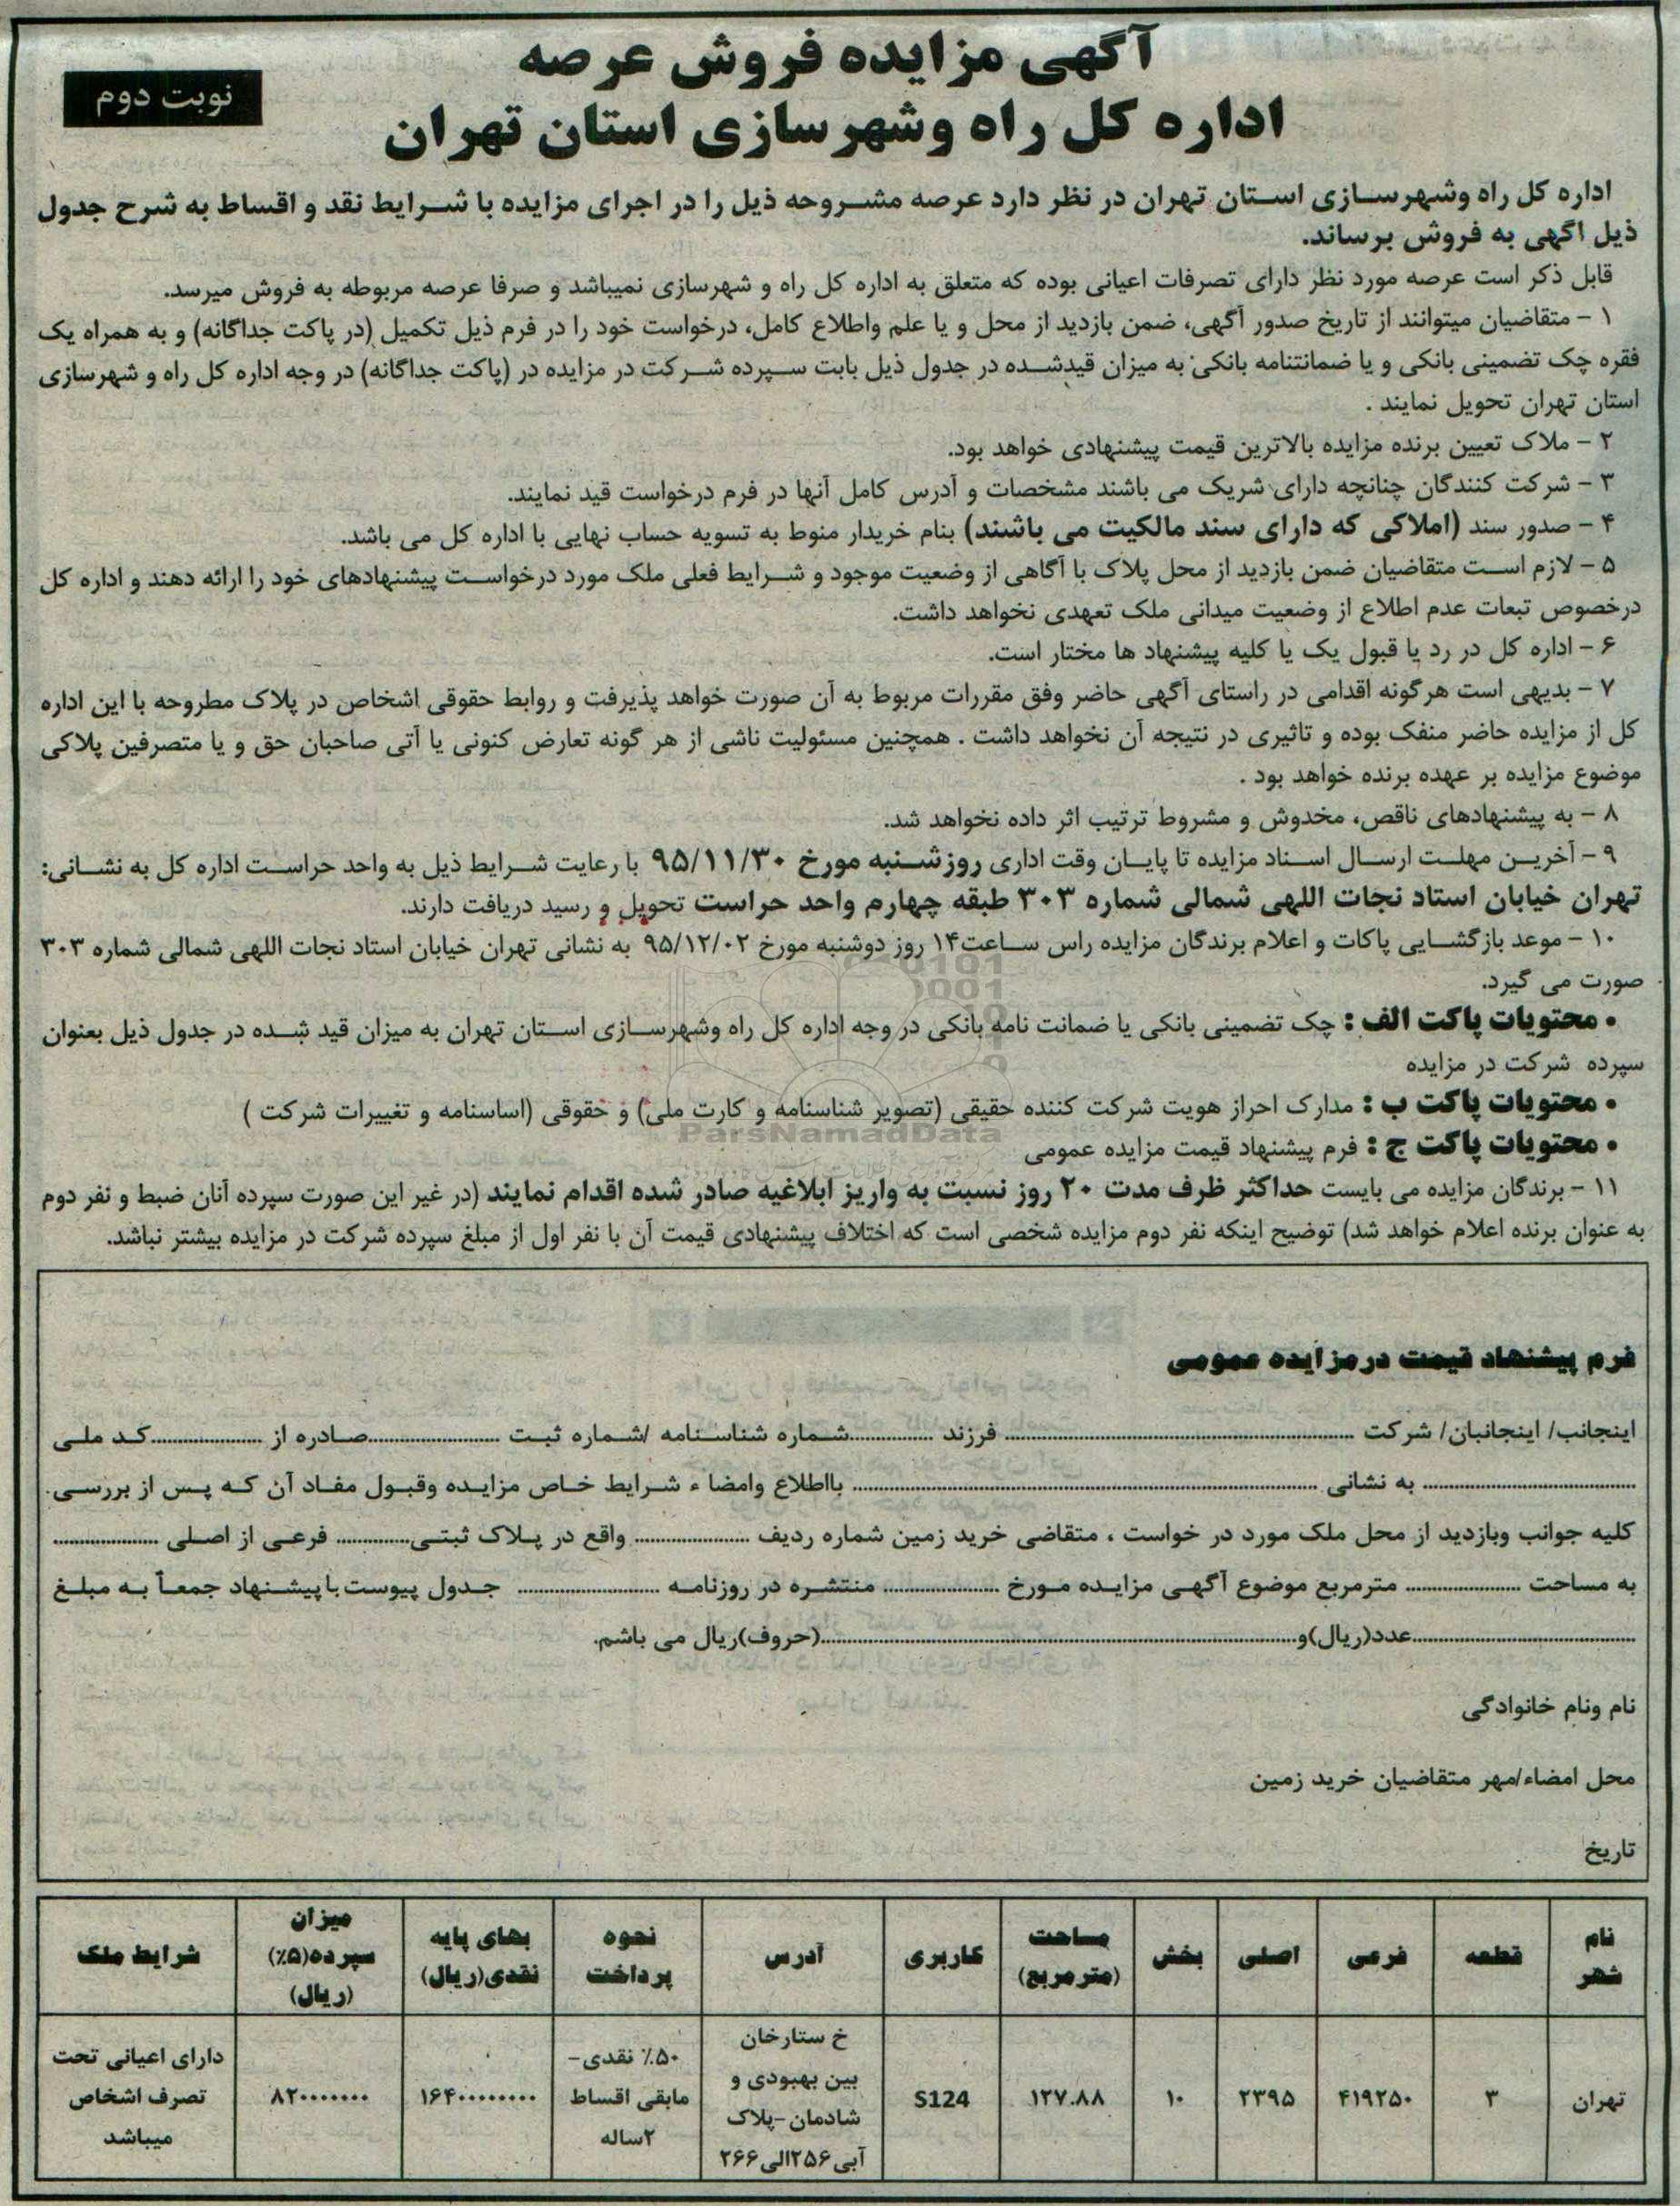 آگهی مزایده فروش عرصه
اداره کل راه وشهرسازی استان تهران
نوبت دوم
اداره کل راه وشهرسازی استان تهران در نظر دارد عرصه مشروحه ذیل را در اجرای مزایده با شرایط نقد و اقساط به شرح جدول
ذیل اگهی به فروش برساند.
قابل ذکر است عرصه مورد نظر دارای تصرفات اعیانی بوده که متعلق به اداره کل راه و شهرسازی نمیباشد و صرفا عرصه مربوطه به فروش میرسد.
۱ - متقاضیان میتوانند از تاریخ صدور آگهی، ضمن بازدید از محل و یا علم واطلاع کامل، درخواست خود را در فرم ذیل تکمیل (در پاکت جداگانه) و به همراه یک
فقره چک تضمینی بانکی و یا ضمانتنامه بانکی به میزان قیدشده در جدول ذیل بابت سپرده شرکت در مزایده در (پاکت جداگانه) در وجه اداره کل راه و شهرسازی
استان تهران تحویل نمایند .
۲ - ملاک تعیین برنده مزایده بالاترین قیمت پیشنهادی خواهد بود.
۳ - شرکت کنندگان چنانچه دارای شریک می باشند مشخصات و آدرس کامل آنها در فرم درخواست قید نمایند.
۴ - صدور سند (املاکی که دارای سند مالکیت می باشند) بنام خریدار منوط به تسویه حساب نهایی با اداره کل می باشد.
۵ - لازم است متقاضیان ضمن بازدید از محل پلاک با آگاهی از وضعیت موجود و شرایط فعلی ملک مورد درخواست پیشنهادهای خود را ارائه دهند و اداره کل
درخصوص تبعات عدم اطلاع از وضعیت میدانی ملک تعهدی نخواهد داشت.
۶ - اداره کل در رد یا قبول یک یا کلیه پیشنهاد ها مختار است.
۷ - بدیهی است هرگونه اقدامی در راستای آگهی حاضر وفق مقررات مربوط به آن صورت خواهد پذیرفت و روابط حقوقی اشخاص در پلاک مطروحه با این اداره
کل از مزایده حاضر منفک بوده و تاثیری در نتیجه آن نخواهد داشت . همچنین مسئولیت ناشی از هر گونه تعارض کنونی یا آتی صاحبان حق و یا متصرفین پلاکی
موضوع مزایده بر عهده برنده خواهد بود .
۸ - به پیشنهادهای ناقص، مخدوش و مشروط ترتیب اثر داده نخواهد شد.
۹ - آخرین مهلت ارسال اسناد مزایده تا پایان وقت اداری روزشنبه مورخ ۹۵/۱۱/۳۰ با رعایت شرایط ذیل به واحد حراست اداره کل به نشانی:
تهران خیابان استاد نجات اللهی شمالی شماره ۳۰۳ طبقه چهارم واحد حراست تحویل و رسید دریافت دارند.
۱۰ - موعد بازگشایی پاکات و اعلام برندگان مزایده راس ساعت۱۴ روز دوشنبه مورخ ۹۵/۱۲/۰۲ به نشانی تهران خیابان استاد نجات اللهی شمالی شماره ۳۰۳
صورت می گیرد.
• محتویات پاکت الف : چک تضمینی بانکی یا ضمانت نامه بانکی در وجه اداره کل راه وشهرسازی استان تهران به میزان قید شده در جدول ذیل بعنوان
سپرده شرکت در مزایده
• محتویات پاکت ب : مدارک احراز هویت شرکت کننده حقیقی (تصویر شناسنامه و کارت ملی) و حقوقی (اساسنامه و تغییرات شرکت )
ParsNamadData
• محتویات پاکت ج : فرم پیشنهاد قیمت مزایده عمومی
۱۱ - برندگان مزایده می بایست حداکثر ظرف مدت ۲۰ روز نسبت به واریز ابلاغیه صادر شده اقدام نمایند (در غیر این صورت سپرده آنان ضبط و نفر دوم
به عنوان برنده اعلام خواهد شد) توضیح اینکه نفر دوم مزایده شخصی است که اختلاف پیشنهادی قیمت آن با نفر اول از مبلغ سپرده شرکت در مزایده بیشتر نباشد.
فرم پیشنهاد قیمت درمزایده عمومی
اینجانب/ اینجانبان/ شرکت .................... فرزند ..............شماره شناسنامه /شماره ثبت ....................صادره از ..................کد ملی
.................... به نشانی .................... بااطلاع وامضا ء شرایط خاص مزایده وقبول مفاد آن که پس از بررسی
کلیه جوانب وبازدید از محل ملک مورد در خواست ، متقاضی خرید زمین شماره ردیف .................. واقع در پلاک ثبتی............. فرعی از اصلی ..................
به مساحت .................. مترمربع موضوع آگهی مزایده مورخ .................. منتشره در روزنامه .................. جدول پیوست با پیشنهاد جمعاً به مبلغ
....................عدد(ریال)و....................(حروف)ریال می باشم.
نام ونام خانوادگی
محل امضاء/مهر متقاضیان خرید زمین
تاریخ
نام شهر | قطعه | فرعی | اصلی | بخش | مساحت (مترمربع) | کاربری | آدرس | نحوه پرداخت | بهای پایه نقدی(ریال) | میزان سپرده(۵٪) (ریال) | شرایط ملک
تهران | ۳ | ۴۱۹۲۵۰ | ۲۳۹۵ | ۱۰ | ۱۲۷.۸۸ | S124 | خ ستارخان بین بهبودی و شادمان-پلاک آبی۲۵۶الی۲۶۶ | ۵۰٪ نقدی- مابقی اقساط ۲ساله | ۱۶۴۰۰۰۰۰۰۰۰ | ۸۲۰۰۰۰۰۰۰ | دارای اعیانی تحت تصرف اشخاص میباشد